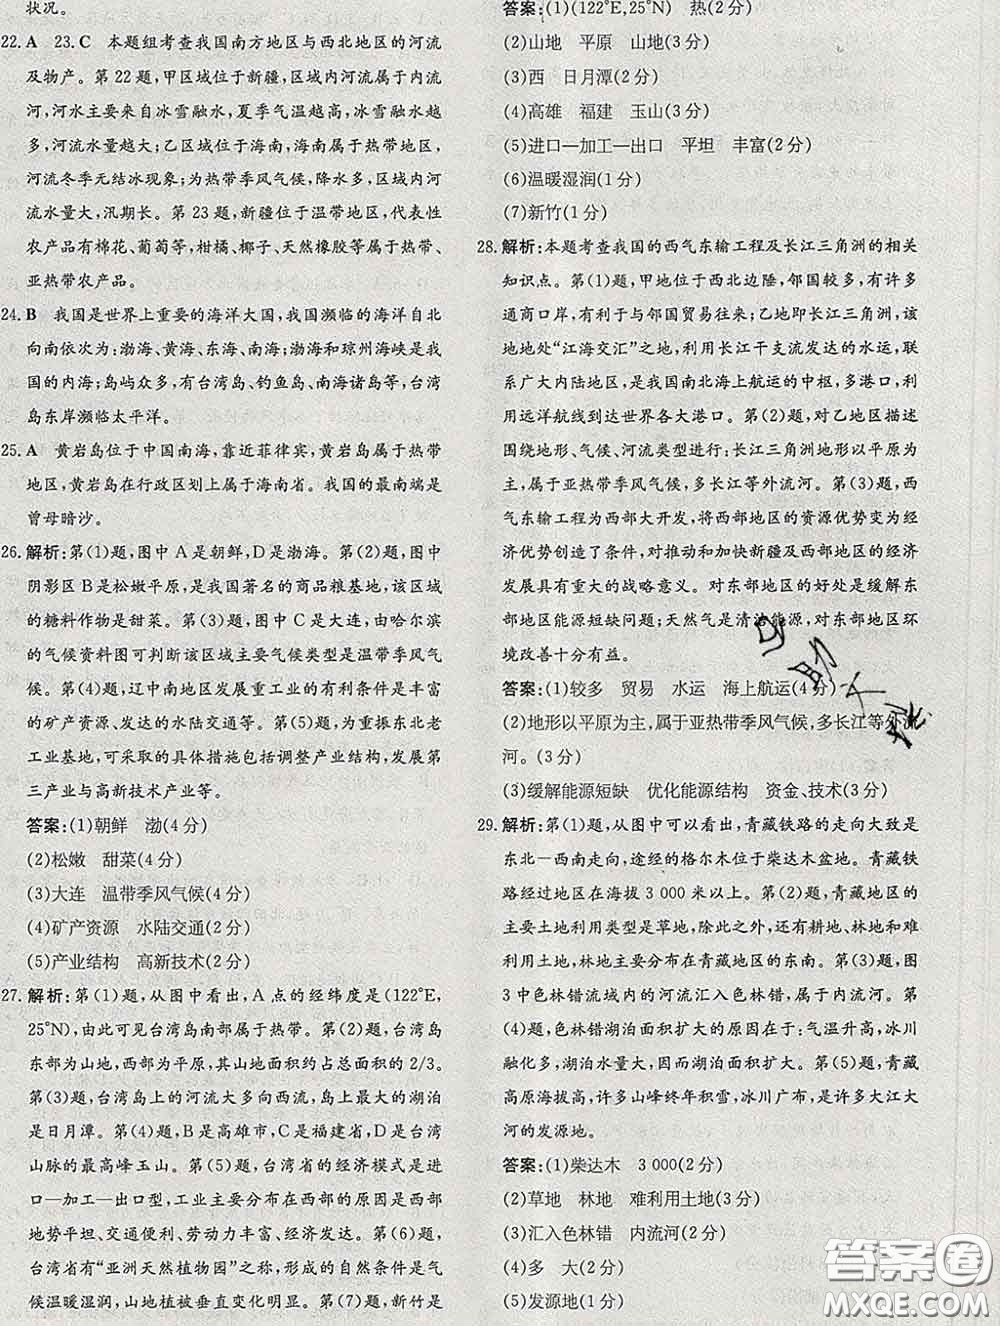 状况。
22. A  23. C  本题组考查我国南方地区与西北地区的河流
及物产。第 22 题,甲区域位于新疆,区域内河流属于内流
河,河水主要来自冰雪融水,夏季气温越高,冰雪融水越
多,河流水量越大;乙区域位于海南,海南属于热带地区,
河流冬季无结冰现象;为热带季风气候,降水多,区域内河
流水量大,汛期长。第 23 题,新疆位于温带地区,代表性
农产品有棉花、葡萄等,柑橘、椰子、天然橡胶等属于热带、
亚热带农产品。
24. B  我国是世界上重要的海洋大国,我国濒临的海洋自北
向南依次为:渤海、黄海、东海、南海;渤海和琼州海峡是我
国的内海;岛屿众多,有台湾岛、钓鱼岛、南海诸岛等,台湾
岛东岸濒临太平洋。
25. A  黄岩岛位于中国南海,靠近菲律宾,黄岩岛属于热带
地区,黄岩岛在行政区划上属于海南省。我国的最南端是
曾母暗沙。
26. 解析:第(1)题,图中 A 是朝鲜,D 是渤海。第(2)题,图中
阴影区 B 是松嫩平原,是我国著名的商品粮基地,该区域
的糖料作物是甜菜。第(3)题,图中 C 是大连,由哈尔滨
的气候资料图可判断该区域主要气候类型是温带季风气
候。第(4)题,辽中南地区发展重工业的有利条件是丰富
的矿产资源、发达的水陆交通等。第(5)题,为重振东北老
工业基地,可采取的具体措施包括调整产业结构,发展第
三产业与高新技术产业等。
答案:(1)朝鲜  渤(4 分)
(2)松嫩  甜菜(4 分)
(3)大连  温带季风气候(4 分)
(4)矿产资源  水陆交通(2 分)
(5)产业结构  高新技术(2 分)
27. 解析:第(1)题,从图中看出,A 点的经纬度是(122°E,
25°N),由此可见台湾岛南部属于热带。第(2)题,台湾岛
东部为山地,西部为平原,其山地面积约占总面积的 2/3。
第(3)题,台湾岛上的河流大多向西流,岛上最大的湖泊
是日月潭。第(4)题,B 是高雄市,C 是福建省,D 是台湾
山脉的最高峰玉山。第(5)题,台湾省的经济模式是进
口—加工—出口型,工业主要分布在西部的原因是西部
地势平坦、交通便利、劳动力丰富、经济发达。第(6)题,
台湾省有“亚洲天然植物园”之称,形成的自然条件是气
候温暖湿润,山地植被垂直变化明显。第(7)题,新竹是
答案:(1)(122°E,25°N)  热(2 分)
(2)山地  平原  山地(3 分)
(3)西  日月潭(2 分)
(4)高雄  福建  玉山(3 分)
(5)进口—加工—出口  平坦  丰富(2 分)
(6)温暖湿润(1 分)
(7)新竹(1 分)
28. 解析:本题考查我国的西气东输工程及长江三角洲的相关
知识点。第(1)题,甲地位于西北边陲,邻国较多,有许多
通商口岸,有利于与邻国贸易往来;乙地即长江三角洲,该
地地处“江海交汇”之地,利用长江干支流发达的水运,联
系广大内陆地区,是我国南北海上航运的中枢,多港口,利
用远洋航线到达世界各大港口。第(2)题,对乙地区描述
围绕地形、气候、河流类型进行。长江三角洲地形以平原为
主,属于亚热带季风气候,多长江等外流河。第(3)题,西
气东输工程为西部大开发,将西部地区的资源优势变为经
济优势创造了条件,对推动和加快新疆及西部地区的经济
发展具有重大的战略意义。对东部地区的好处是缓解东
部地区能源短缺问题;天然气是清洁能源,对东部地区环
境改善十分有益。
答案:(1)较多  贸易  水运  海上航运(4 分)
(2)地形以平原为主,属于亚热带季风气候,多长江等外流
河。(3 分)
(3)缓解能源短缺  优化能源结构  资金、技术(3 分)
29. 解析:第(1)题,从图中可以看出,青藏铁路的走向大致是
东北—西南走向,途经的格尔木位于柴达木盆地。青藏铁
路经过地区在海拔 3 000 米以上。第(2)题,青藏地区的
主要土地利用类型是草地,除此以外,还有耕地、林地和难
利用土地,林地主要分布在青藏地区的东南。第(3)题,图
3 中色林错流域内的河流汇入色林错,属于内流河。第
(4)题,色林错湖泊面积扩大的原因在于:气温升高,冰川
融化多,湖泊水量大,因而湖泊面积扩大。第(5)题,青藏
高原海拔高,许多山峰终年积雪,冰川广布,是许多大江大
河的发源地。
答案:(1)柴达木  3 000(2 分)
(2)草地  林地  难利用土地(3 分)
(3)汇入色林错  内流河(2 分)
(4)多  大(2 分)
(5)发源地(1 分)
答案圈
MXQE.COM